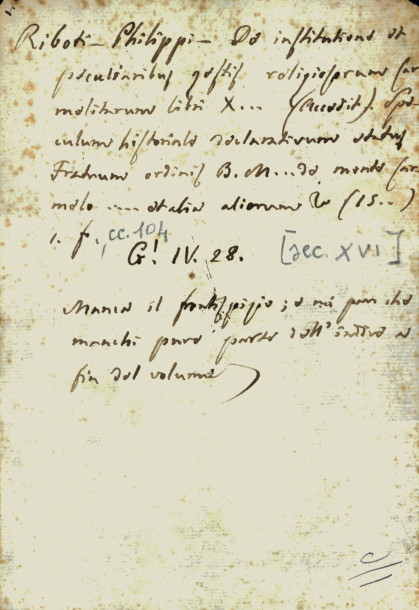 Riboti - Philippi - De institutione et
peculiaribus gestis religiosorum Car
melitarum libri X... (Accedit). Spe
culum historiale declarativum status
Fratrum ordinis B. M... de monte Car
melo .... et alia aliorum (15..)
1. f., cc. 104
G! IV. 28. [sec. XVI]
Manca il frontispizio; e mi pare che
manchi pure parte dell'indice a
fin del volume)